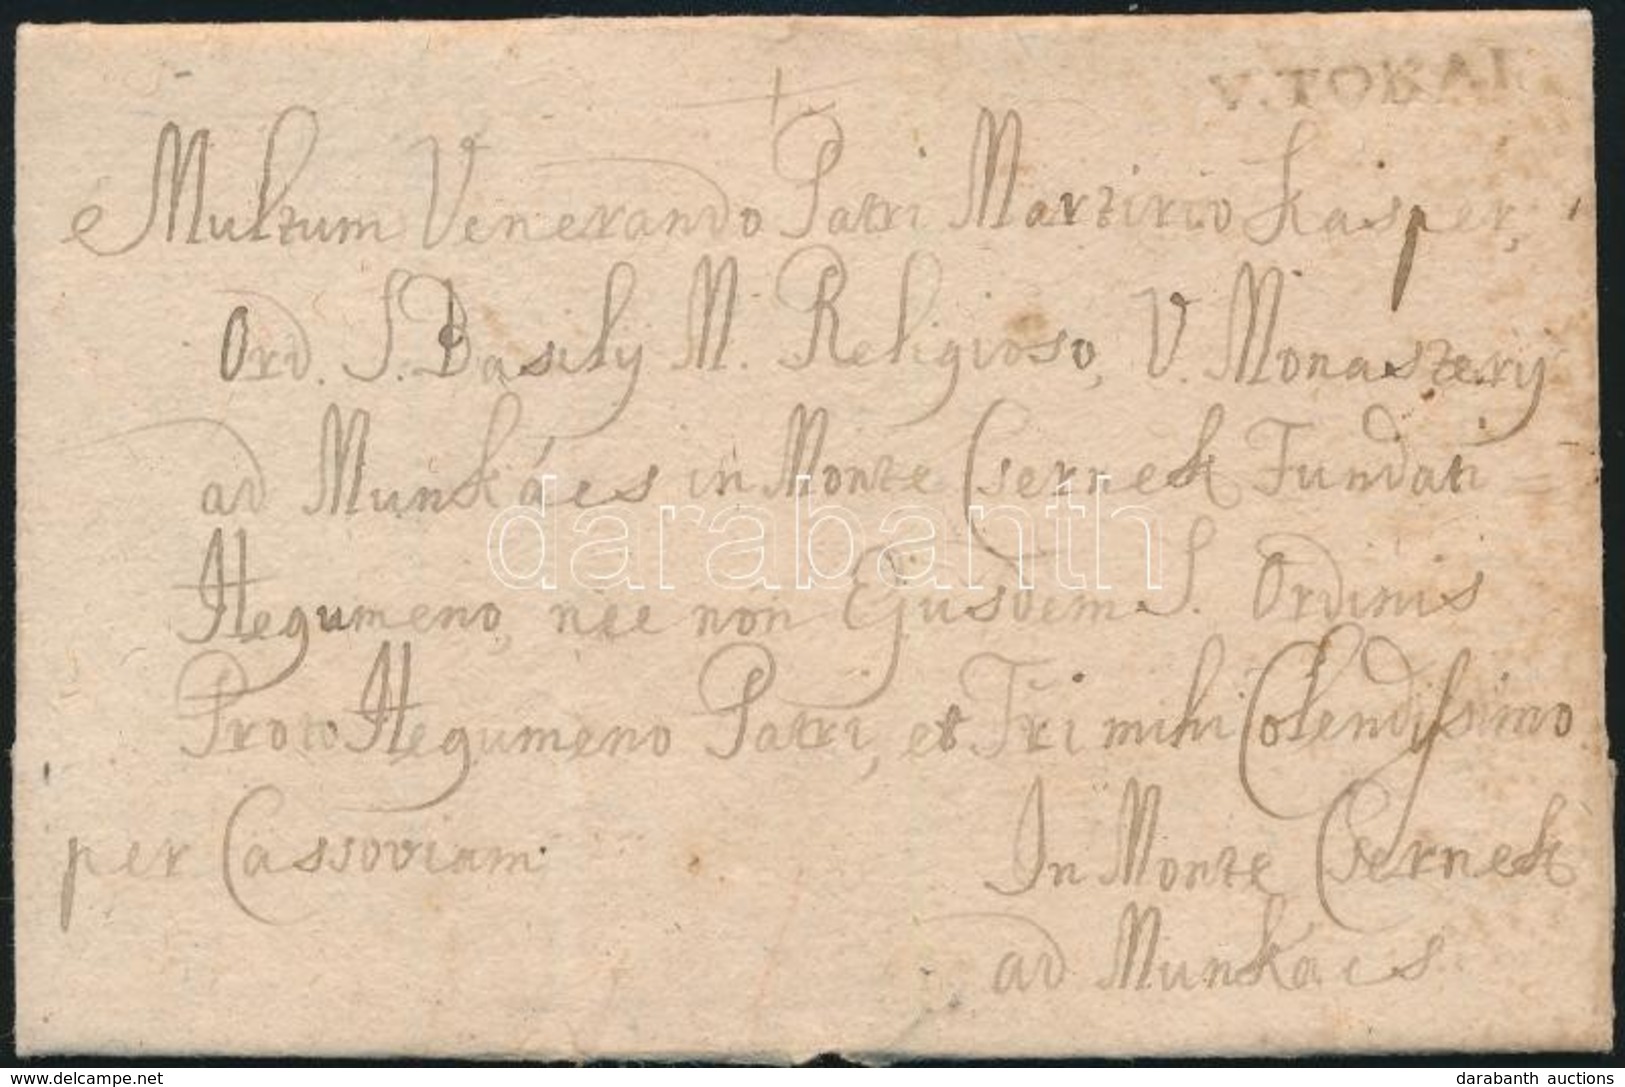 V. TOKAI
+
Multum Venerando Patri Martirio Kasper,
Ord. S. Basily M. Religioso, V. Monastery
ad Munkács in Monte Csernek Fundati
Hegumeno, nec non Ejusdem S. Ordinis
Proto Hegumeno Patri, et Fri mihi Colendissimo
per Cassoviam
In Monte Csernek
ad Munkács
darabanth
www.delcampe.net
darabanth auctions